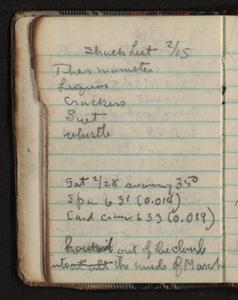 Shack List 2/15
Thermometer
Liquor
Crackers
Suet
whistle
Sat 2/28 evening 350
5 pm 631 (0.014)
633 (0.019)
out of the clouds
into the winds of March